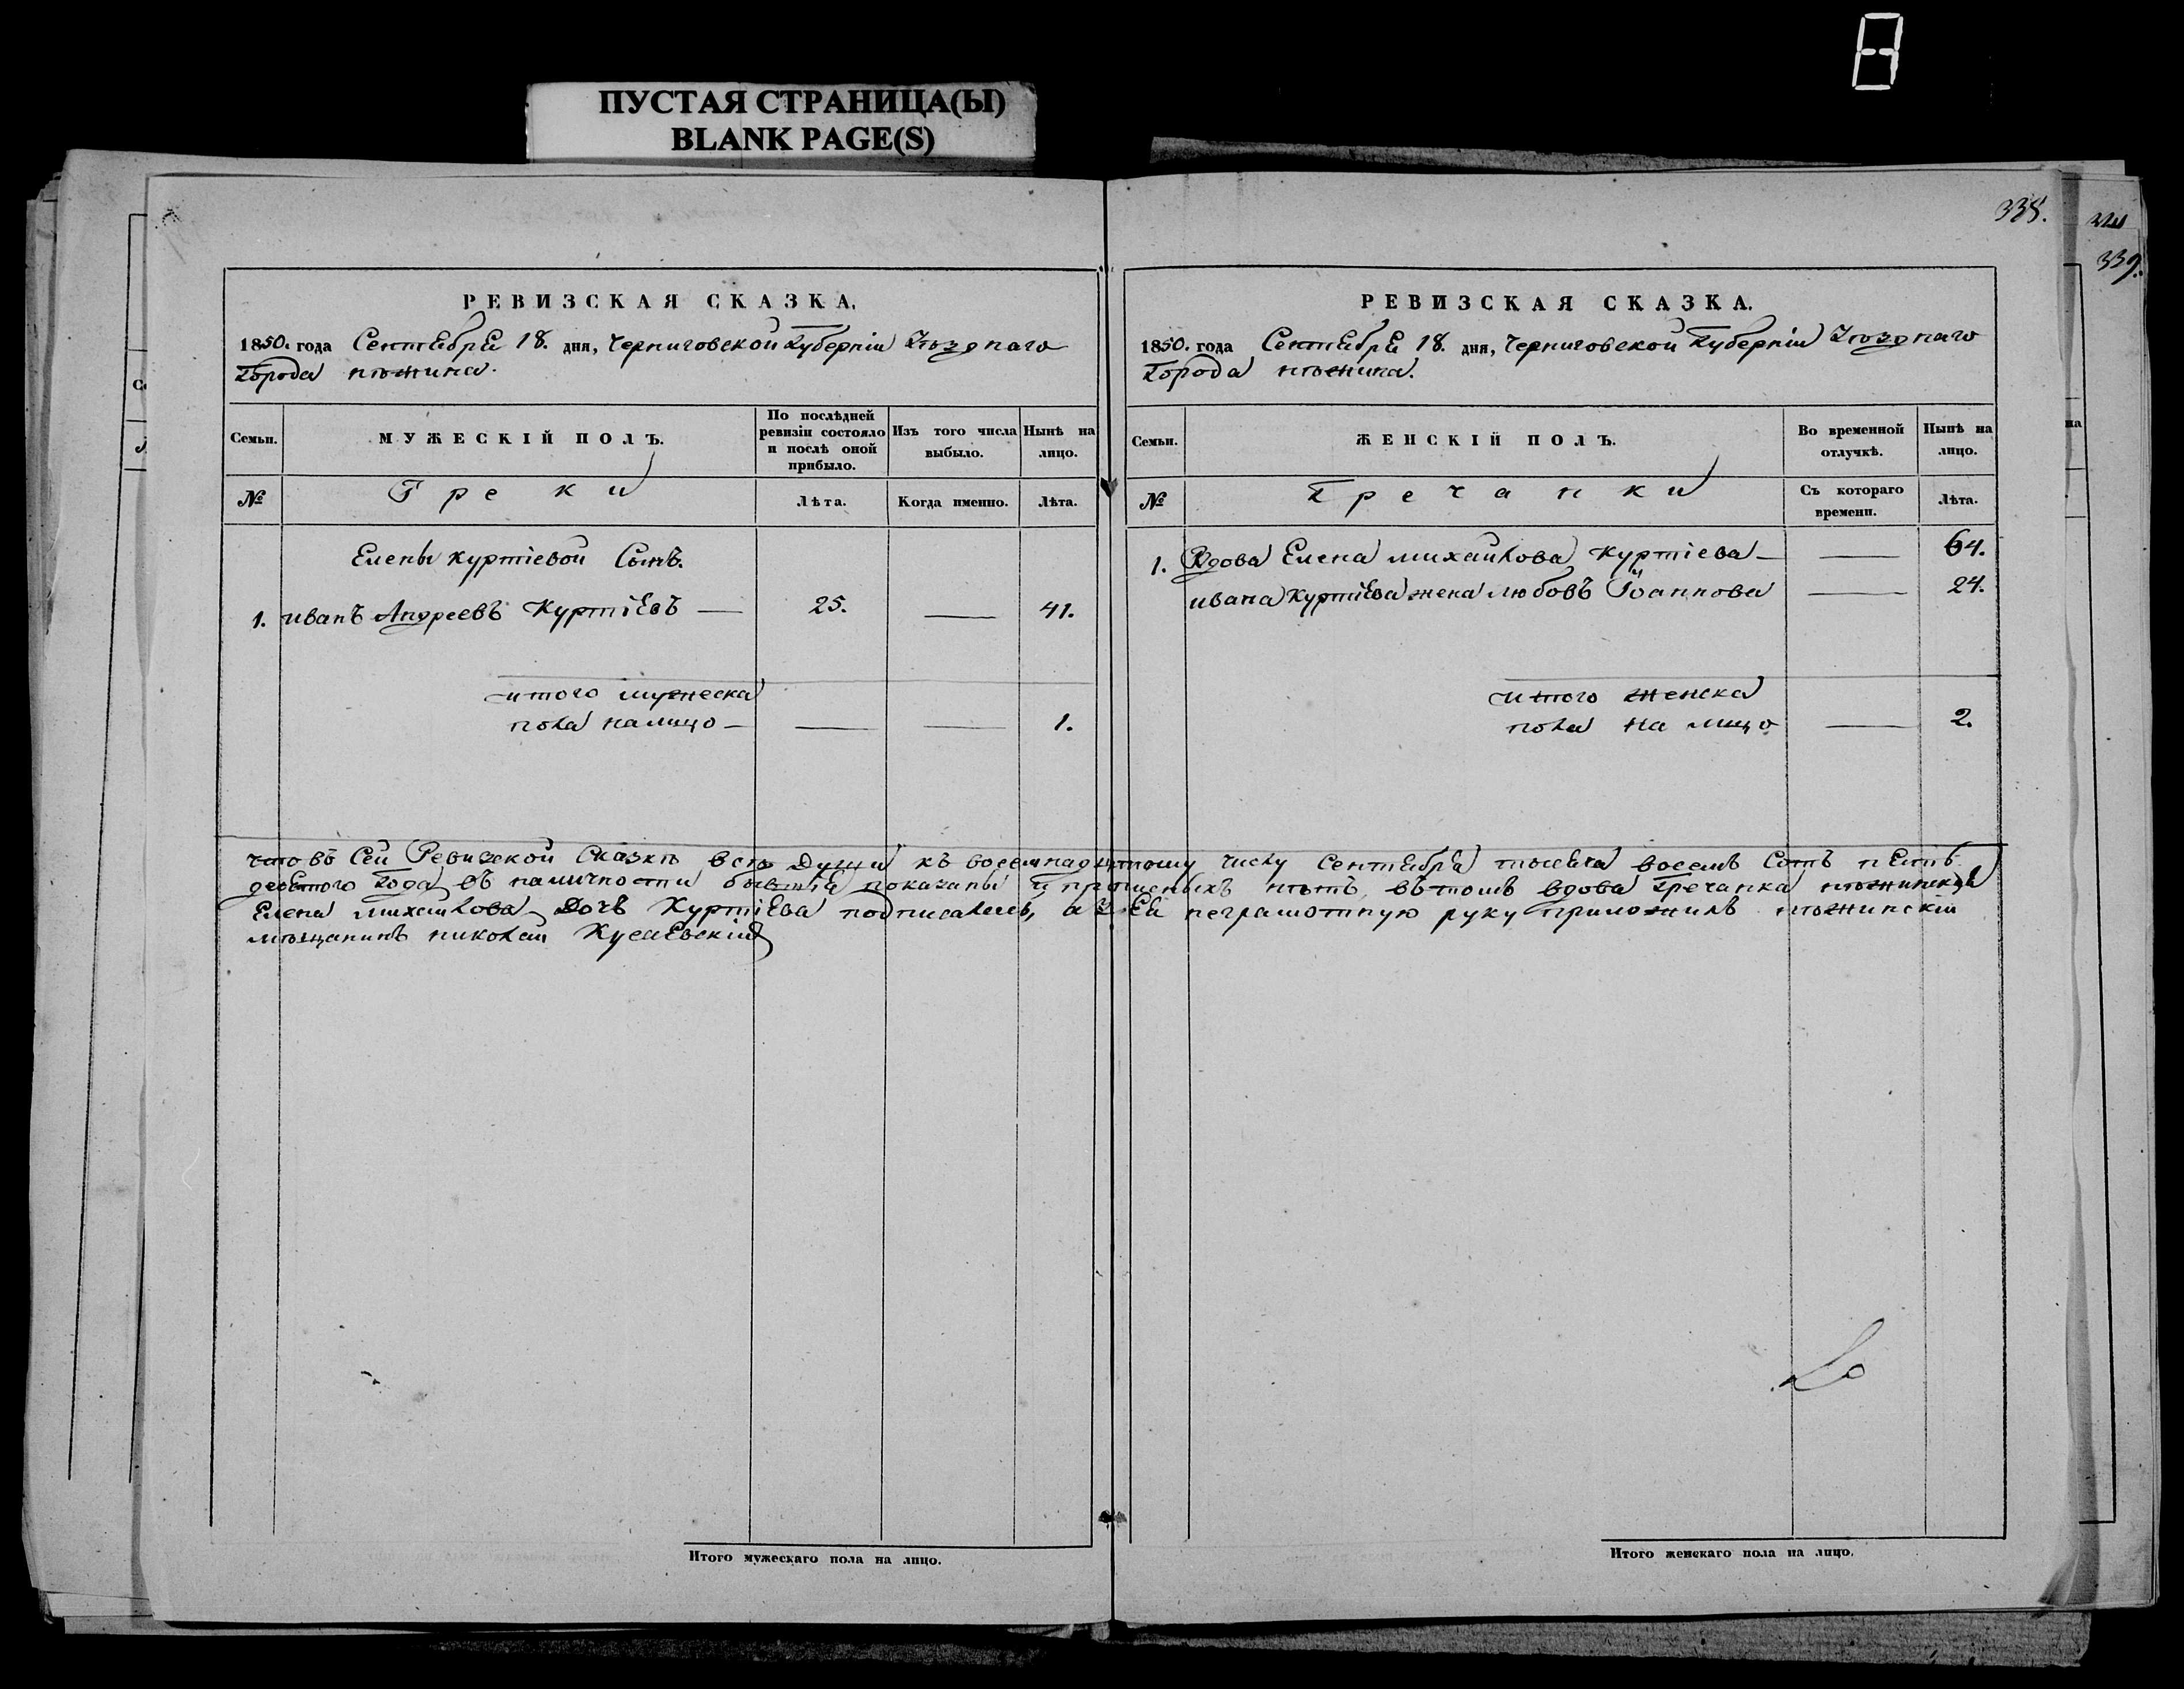 ПУСТАЯ СТРАНИЦА(Ы)
BLANK PAGE(S)
338.
339.
РЕВИЗСКАЯ СКАЗКА.
1850. года Сентября 18. дня, Черниговской Губерніи Уѣзднаго
Города нѣжина.
Семьи.
МУЖЕСКІЙ ПОЛЪ.
По послѣдней ревизіи состояло и послѣ оной прибыло.
Изъ того числа выбыло.
Нынѣ на лицо.
№
Греки
Лѣта.
Когда именно.
Лѣта.
Елены Куртіевой Сынъ.
1. иванъ Андреевъ Куртіевъ — 25. — 41.
итого мужеска
пола налицо — — — 1.
РЕВИЗСКАЯ СКАЗКА.
1850. года Сентября 18. дня, Черниговской Губерніи Уѣзднаго
Города нѣжина.
Семьи.
ЖЕНСКІЙ ПОЛЪ.
Во временной отлучкѣ.
Нынѣ на лицо.
№
Гречанки
Съ котораго времени.
Лѣта.
1. Вдова Елена михайлова Куртіева — — 64.
ивана Куртіева жена любовъ Іоаннова — 24.
итого женска
пола на лицо — 2.
что въ Сей Ревизской Сказкѣ всѣ Души къ восемнадцятому числу Сентября тысяча восемъ Сотъ пять
десятого Года въ наличности бывшія показаны и прописныхъ нѣтъ въ томъ вдова Гречанка нѣжинская
Елена михайлова Дочь Куртіева подписалась, а за Ея неграмотную руку приложилъ нѣжинскій
мѣщанинъ николай
Итого мужескаго пола на лицо.
Итого женскаго пола на лицо.